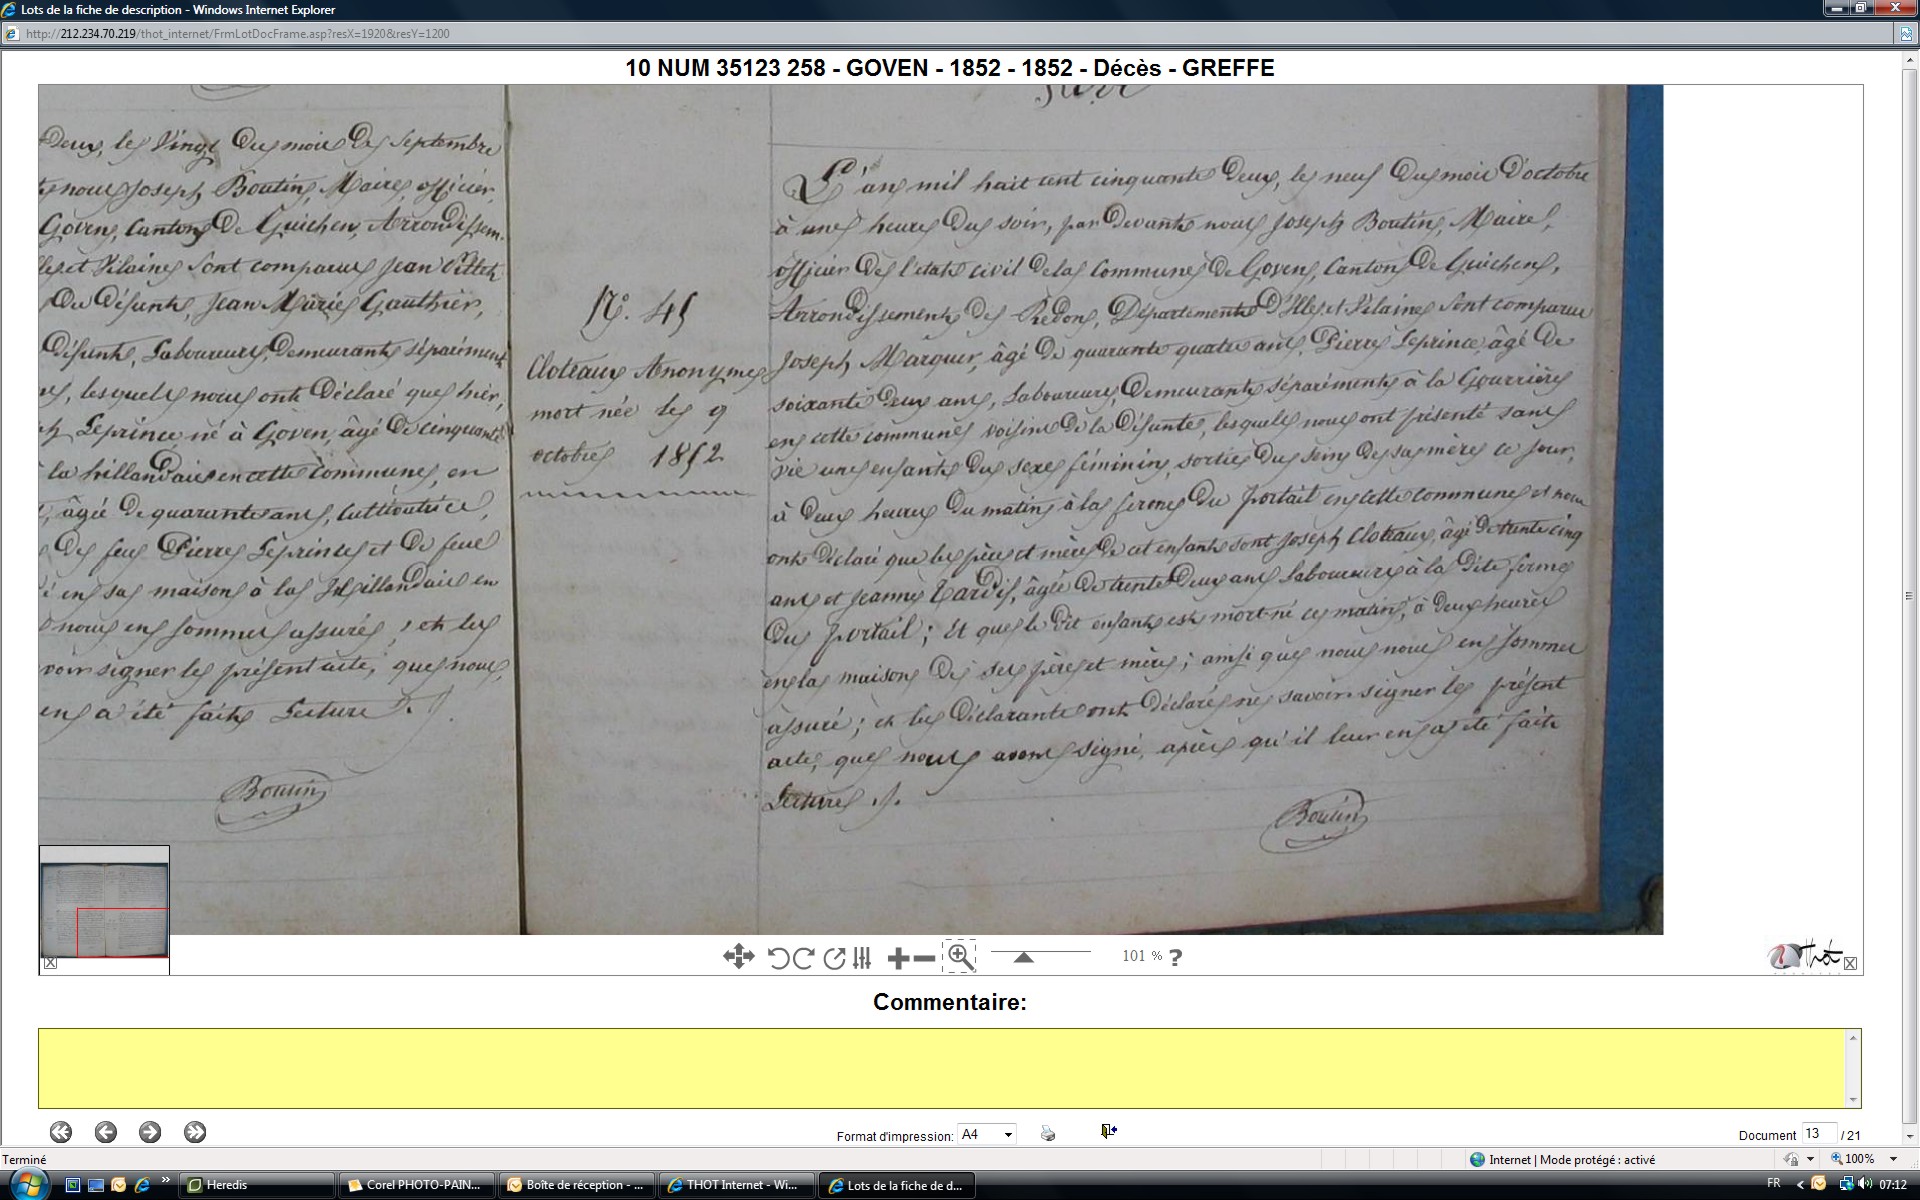 Lots de la fiche de description - Windows Internet Explorer
http://212.234.70.219/thot_internet/FrmLotDocFrame.asp?resX=1920&resY=1200
10 NUM 35123 258 - GOVEN - 1852 - 1852 - Décès - GREFFE
Deux, le Vingt Du mois De Septembre
nous Joseph Boutin, Maire, officier,
Goven, Canton De Guichen, Arrondissem-
et Vilaine Sont comparus Jean
Du Défunt, Jean Marie Gauthier,
Défunt, Laboureurs, Demeurant séparément
lesquels nous ont Déclaré que hier,
Leprince né à Goven, âgé De cinquante
en cette Commune, en
âgée De quarante ans, Cultivatrice,
De feu Pierre Leprince et De feue
en sa maison à la en
nous en sommes assuré, et les
voir signer le présent acte, que nous,
en a été faite Lecture ./.
Boutin
No. 45
Cloteaux Anonyme
mort née le 9
octobre 1852
L'an mil huit cent cinquante Deux, le neuf Du mois D'octobre
à une heure Du soir, par Devant nous Joseph Boutin, Maire,
officier De l'etat civil De la Commune De Goven, Canton De Guichen,
Arrondissement De Redon, Département D'Ille et Vilaine Sont comparus
Joseph Marquer, âgé De quarante quatre ans, Pierre Leprince, âgé De
soixante Deux ans, Laboureurs, Demeurant séparément à la Gourrière
en cette commune voisins De la Défunte, lesquels nous ont présenté sans
vie une enfant Du sexe féminin, sortie Du sein De sa mère ce jour,
à Deux heures Du matin à la ferme Du portail en cette commune et nous
ont Déclaré que les père et mère De cet enfant sont Joseph Cloteaux, âgé De trente cinq
ans et Jeanne Tardif, âgée De trente Deux ans Laboureurs à la Dite ferme
Du portail ; Et que le Dit enfant est mort-né ce matin, à Deux heures
en la maison De ses père et mère ; ainsi que nous nous en sommes
assuré ; et les Déclarants ont Déclaré ne savoir signer le présent
acte, que nous avons signé, après qu'il leur en a été faite
Lecture ./.
Boutin
101 % ?
Thot
Commentaire:
Format d'impression: A4
Document 13 / 21
Terminé
Internet | Mode protégé : activé
100%
Heredis
Corel PHOTO-PAIN...
Boîte de réception - ...
THOT Internet - Wi...
Lots de la fiche de d...
FR
07:12